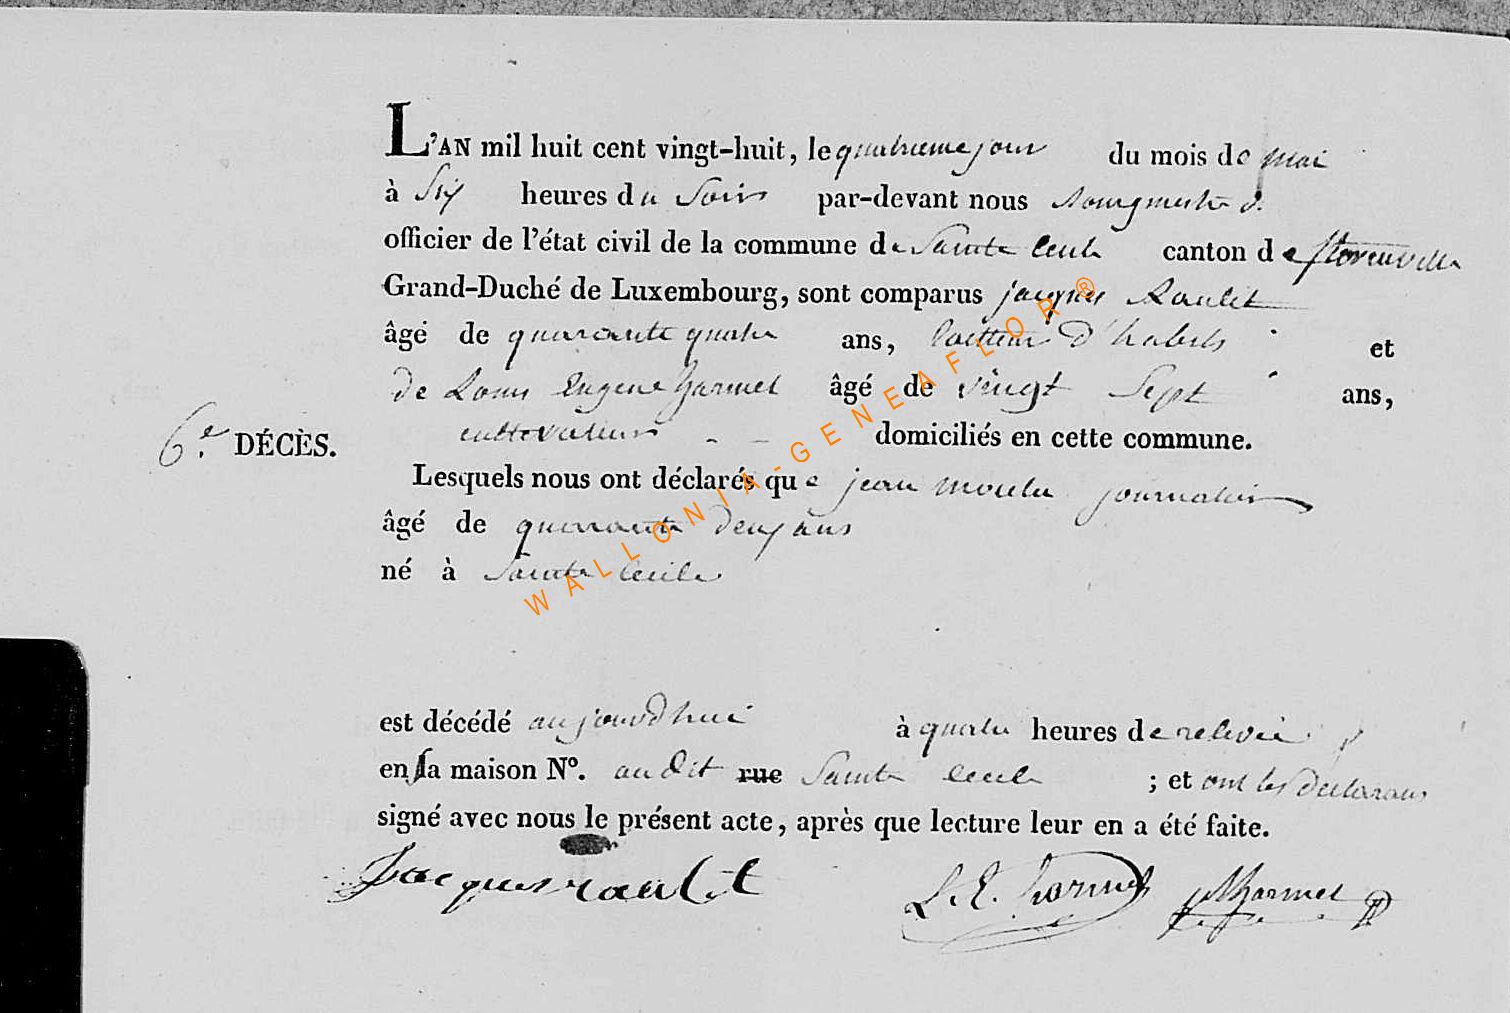 L'AN mil huit cent vingt-huit, le quatrieme jour du mois de mai
à Six heures du Soir par-devant nous Bourgmestre &
officier de l'état civil de la commune de Sainte Cecile canton de florenville
Grand-Duché de Luxembourg, sont comparus jacques Raulit
âgé de quarante quatre ans, tailleur d'habits et
de Louis Eugene harmel âgé de vingt Sept ans,
6e. DÉCÈS.
cultivateur domiciliés en cette commune.
Lesquels nous ont déclarés que jean journalier
âgé de quarante deux ans
né à Sainte Cecile
est décédé aujourd'hui à quatre heures de relevée
en sa maison No. audit rue Sainte Cecile ; et ont les declarans
signé avec nous le présent acte, après que lecture leur en a été faite.
Jacques raulit L. E. harmel harmel
WALLONIA-GENEAFLOR®